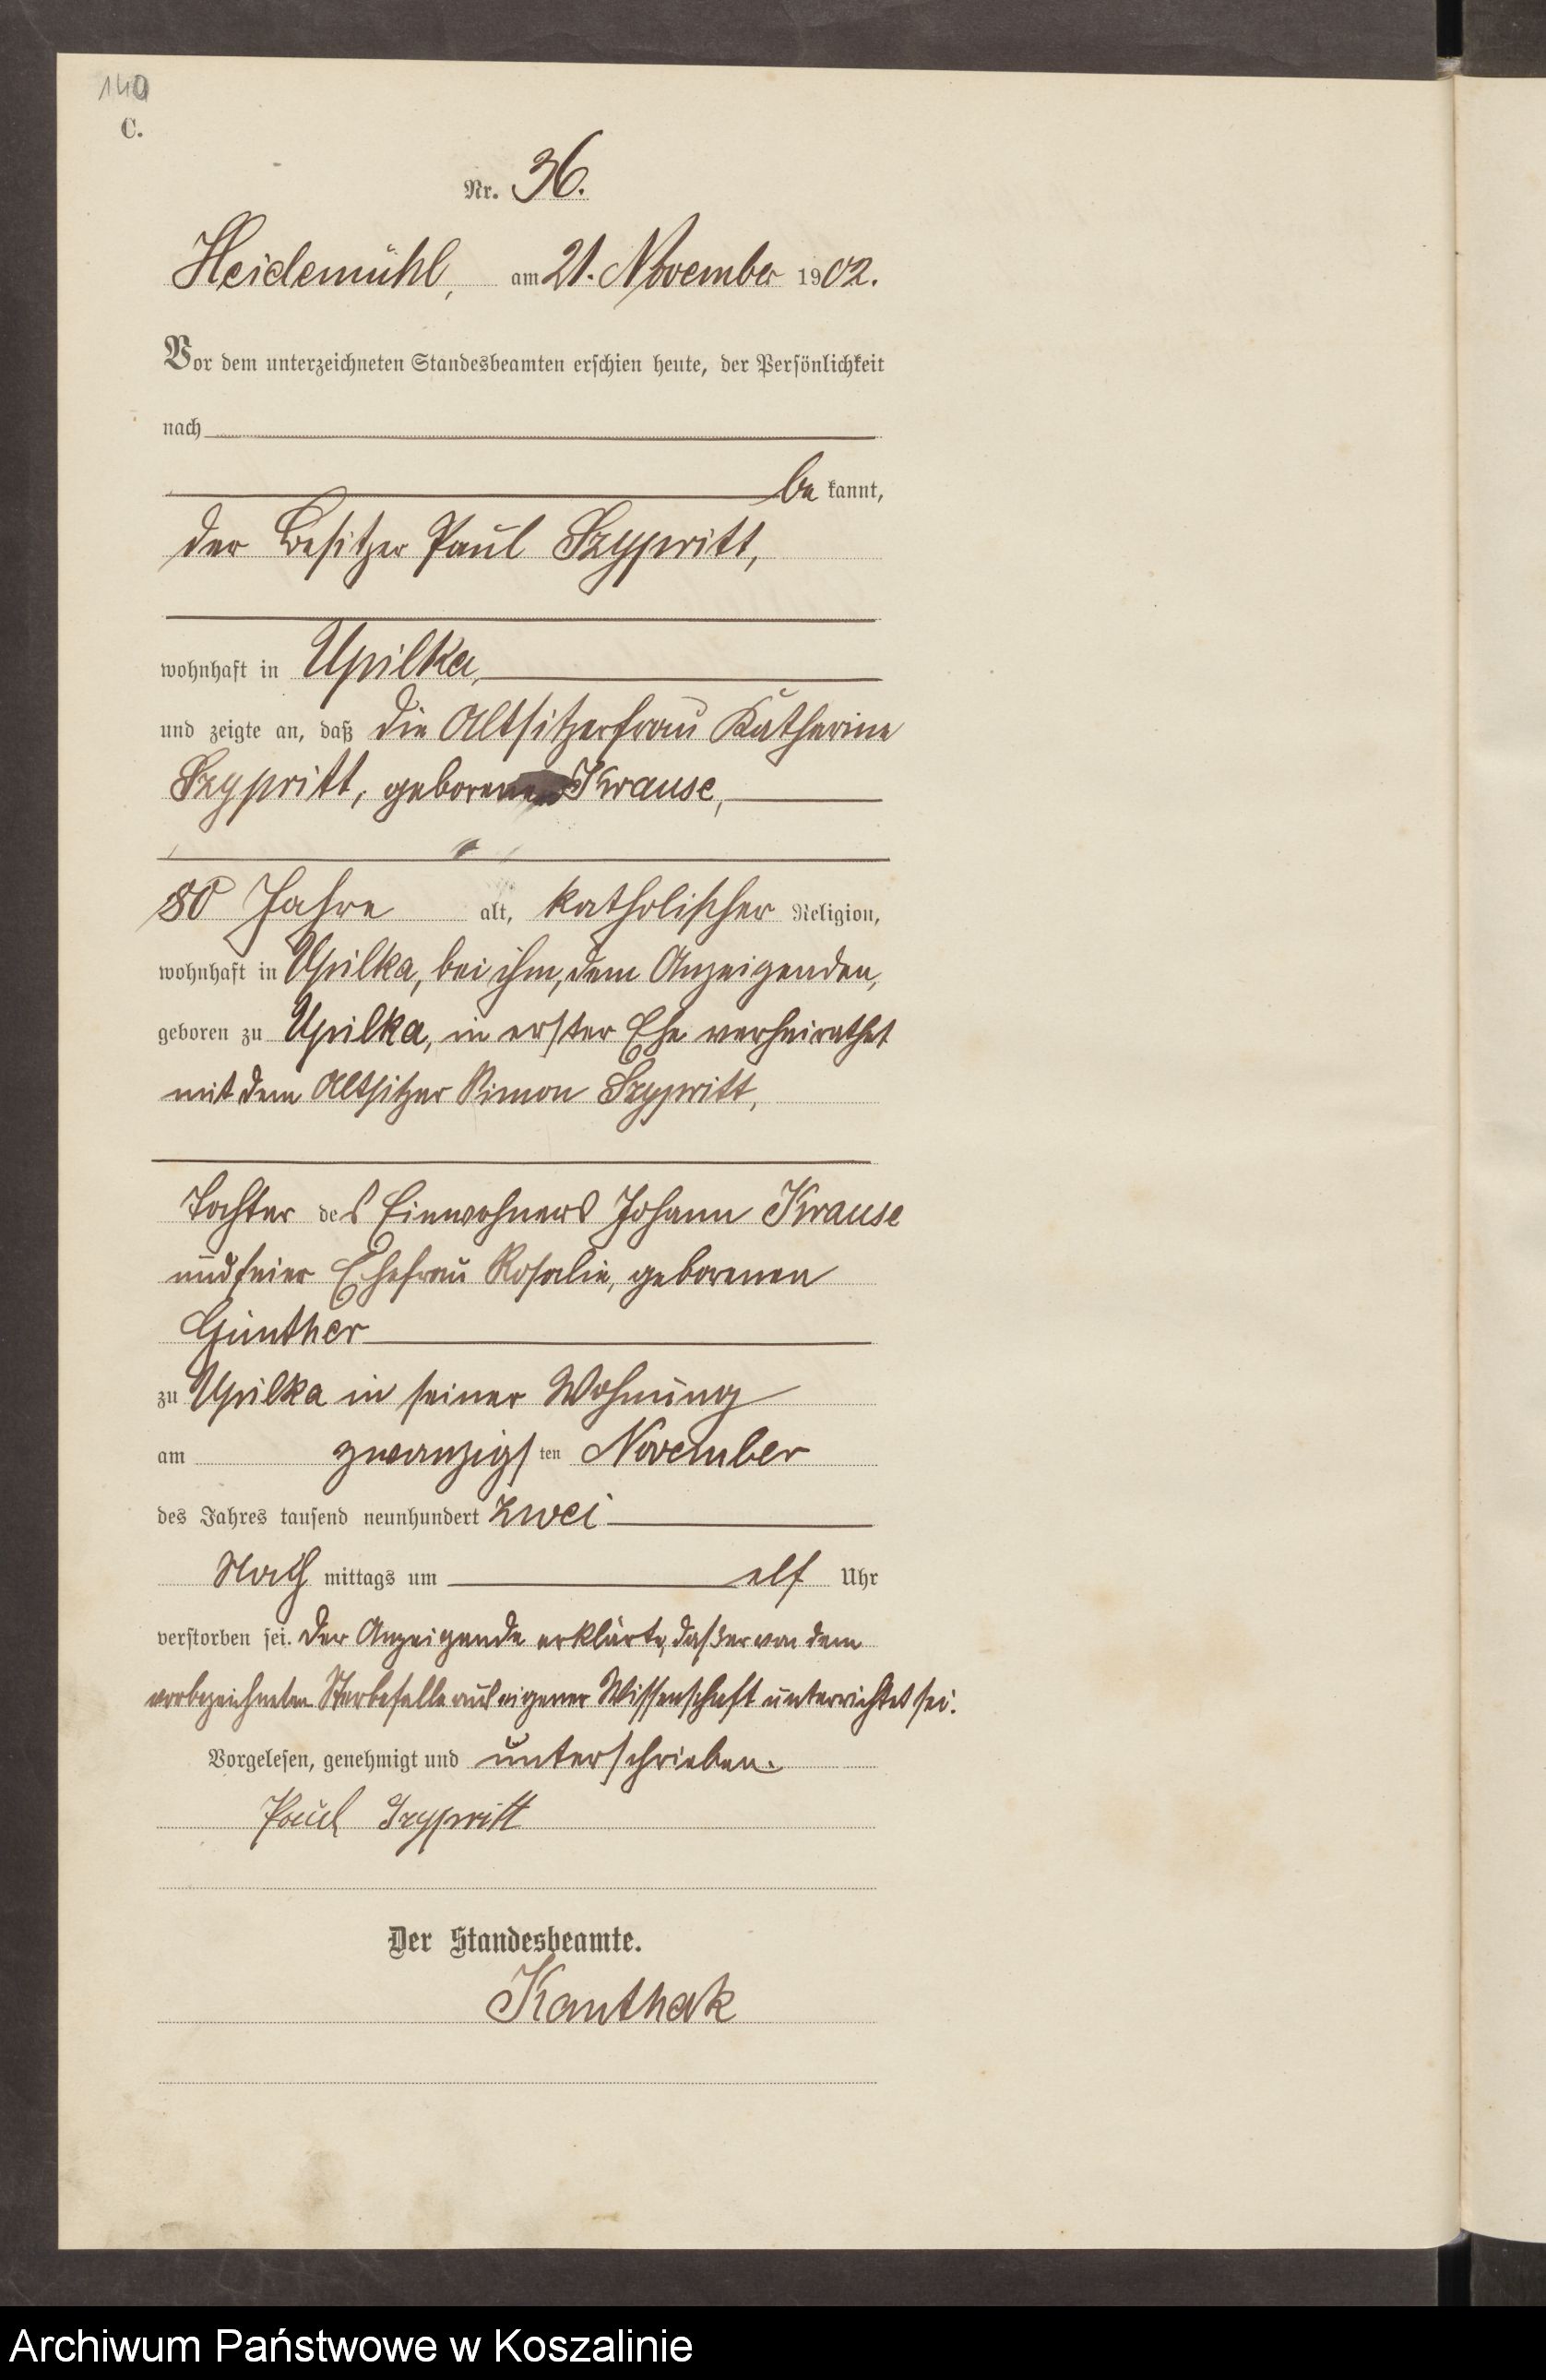 140
C.
Nr. 36.
Heidemühl, am 21. November 1902.
Vor dem unterzeichneten Standesbeamten erschien heute, der Persönlichkeit
nach
be kannt,
der Besitzer Paul Szypritt,
wohnhaft in Upilka,
und zeigte an, daß die Altsitzerfrau Katharine
Szypritt, geborenen Krause,
80 Jahre alt, katholischer Religion,
wohnhaft in Upilka, bei ihm, dem Anzeigenden,
geboren zu Upilka, in erster Ehe verheirathet
mit dem Altsitzer Simon Szypritt,
Tochter des Einwohners Johann Krause
und seiner Ehefrau Rosalie, geborenen
Günther
zu Upilka in seiner Wohnung
am zwanzigsten November
des Jahres tausend neunhundert zwei
Nach mittags um elf Uhr
verstorben sei. Der Anzeigende erklärte, daß er von dem
vorbezeichneten Sterbefalle aus eigener Wissenschaft unterrichtet sei.
Vorgelesen, genehmigt und unterschrieben.
Paul Szypritt
Der Standesbeamte.
Kanthak
Archiwum Państwowe w Koszalinie